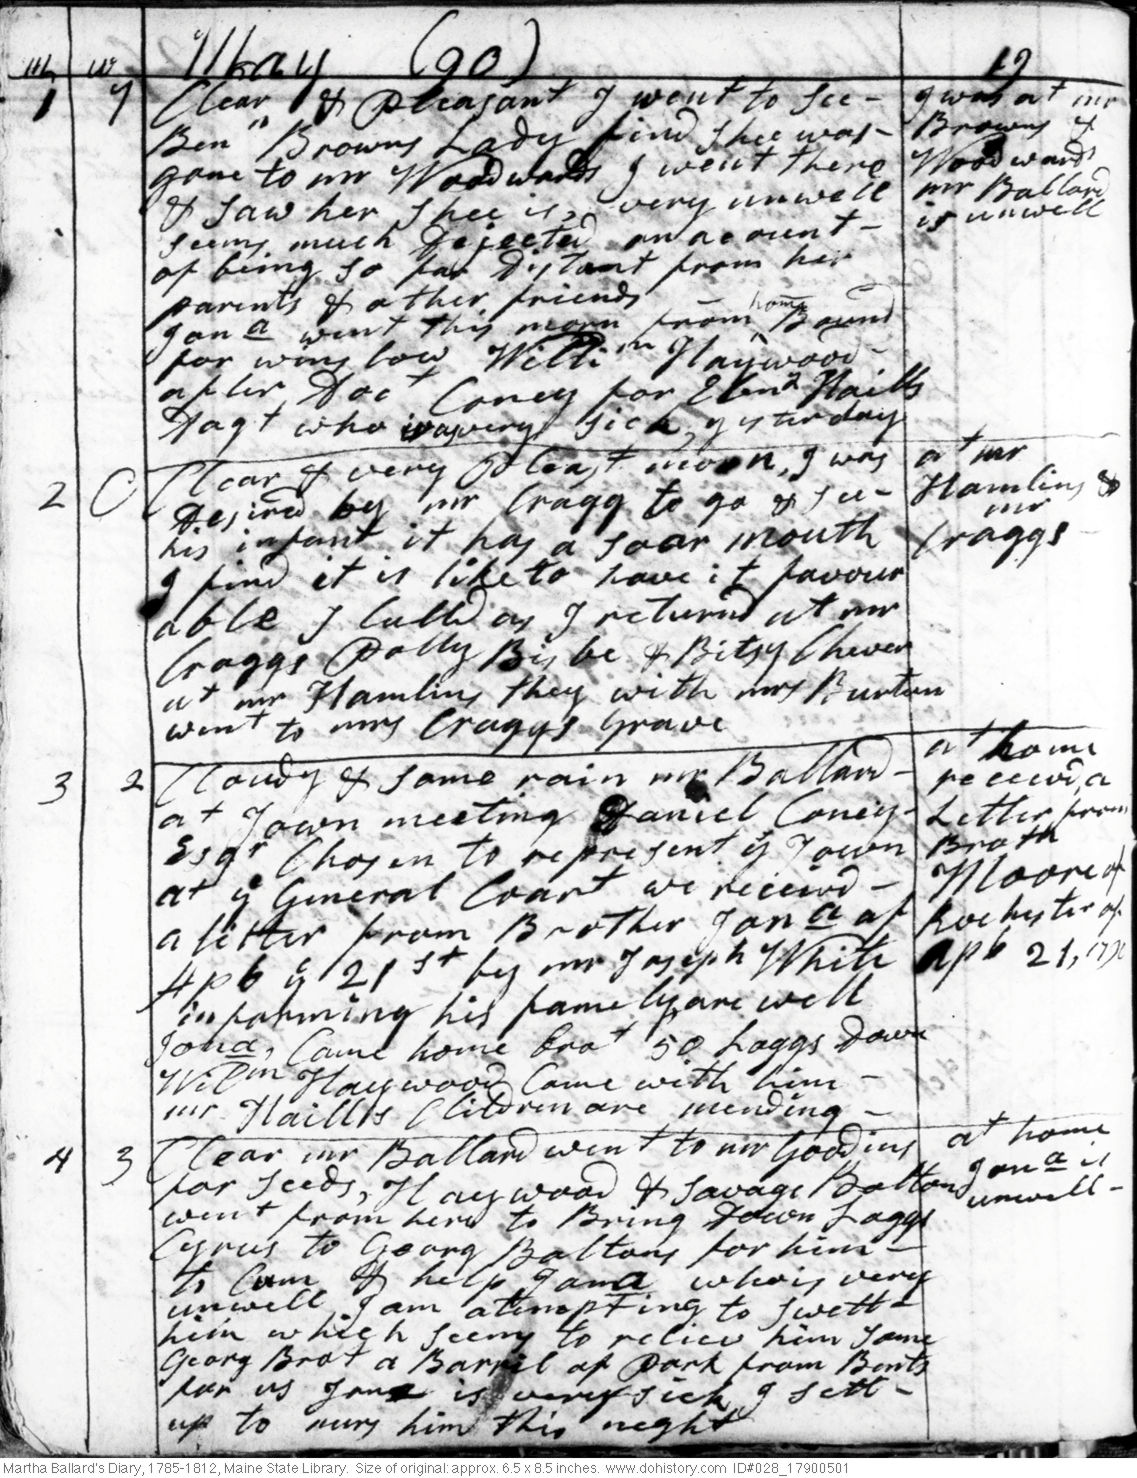 m w May (90) 19
1 7 Clear & Pleasant I went to See -
Ben" Browns Lady find Shee was -
gone to mr Woodwards I went there
& saw her Shee is, very unwell
seems much Dejected on account -
of being so far Distant from her
parents & other friends
Jona went this morn from home Bound
for winslow Willim Haywood -
after Doct Coney for Ebenz Haills
Dagt who was very sick, yesterday
I was at mr
Browns &
Woodwards
mr Ballard
is unwell
2 C Clear & very Pleast moon, I was
Desired by mr Cragg to go & see -
his infant it has a soar mouth
I find it is like to have it favour
able I Calld as I returnd at mr
Craggs Polly Bisbe & Bitsy Chever
at mr Hamlins they with mrs Burton
went to mrs Craggs Grave
at mr
Hamlins &
mr
Craggs -
3 2 Cloudy & some rain mr Ballard -
at Town meeting Daniel Coney -
Esqr Chosen to represent ye Town
at ye General Coart we receivd -
a letter from Brother Jona of
Apb ye 21st by mr Joseph White
informing his famely are well
Jona, Came home brot 50 Loggs Down
Willm Haywood Came with him -
mr Haillss Children are mending -
at home
receivd a
Letter from
Broth
Moore of
Rochester of
apb 21, 1790
4 3 Clear mr Ballard went to mr Goodins
for seeds, Haywood & Savage Bolton
went from here to Bring Down Loggs
Cyrus to Georg Boltons for him -
to Com & help Jona who is very
unwell I am atempting to swett -
him which seems to reliev him some
Georg Brot a Barril of Pork from Bents
for us Jona is very sick I sett -
up to nurs him this neght
at home
Jona is
unwell -
Martha Ballard's Diary, 1785-1812, Maine State Library. Size of original: approx. 6.5 x 8.5 inches. www.dohistory.com ID#028_17900501